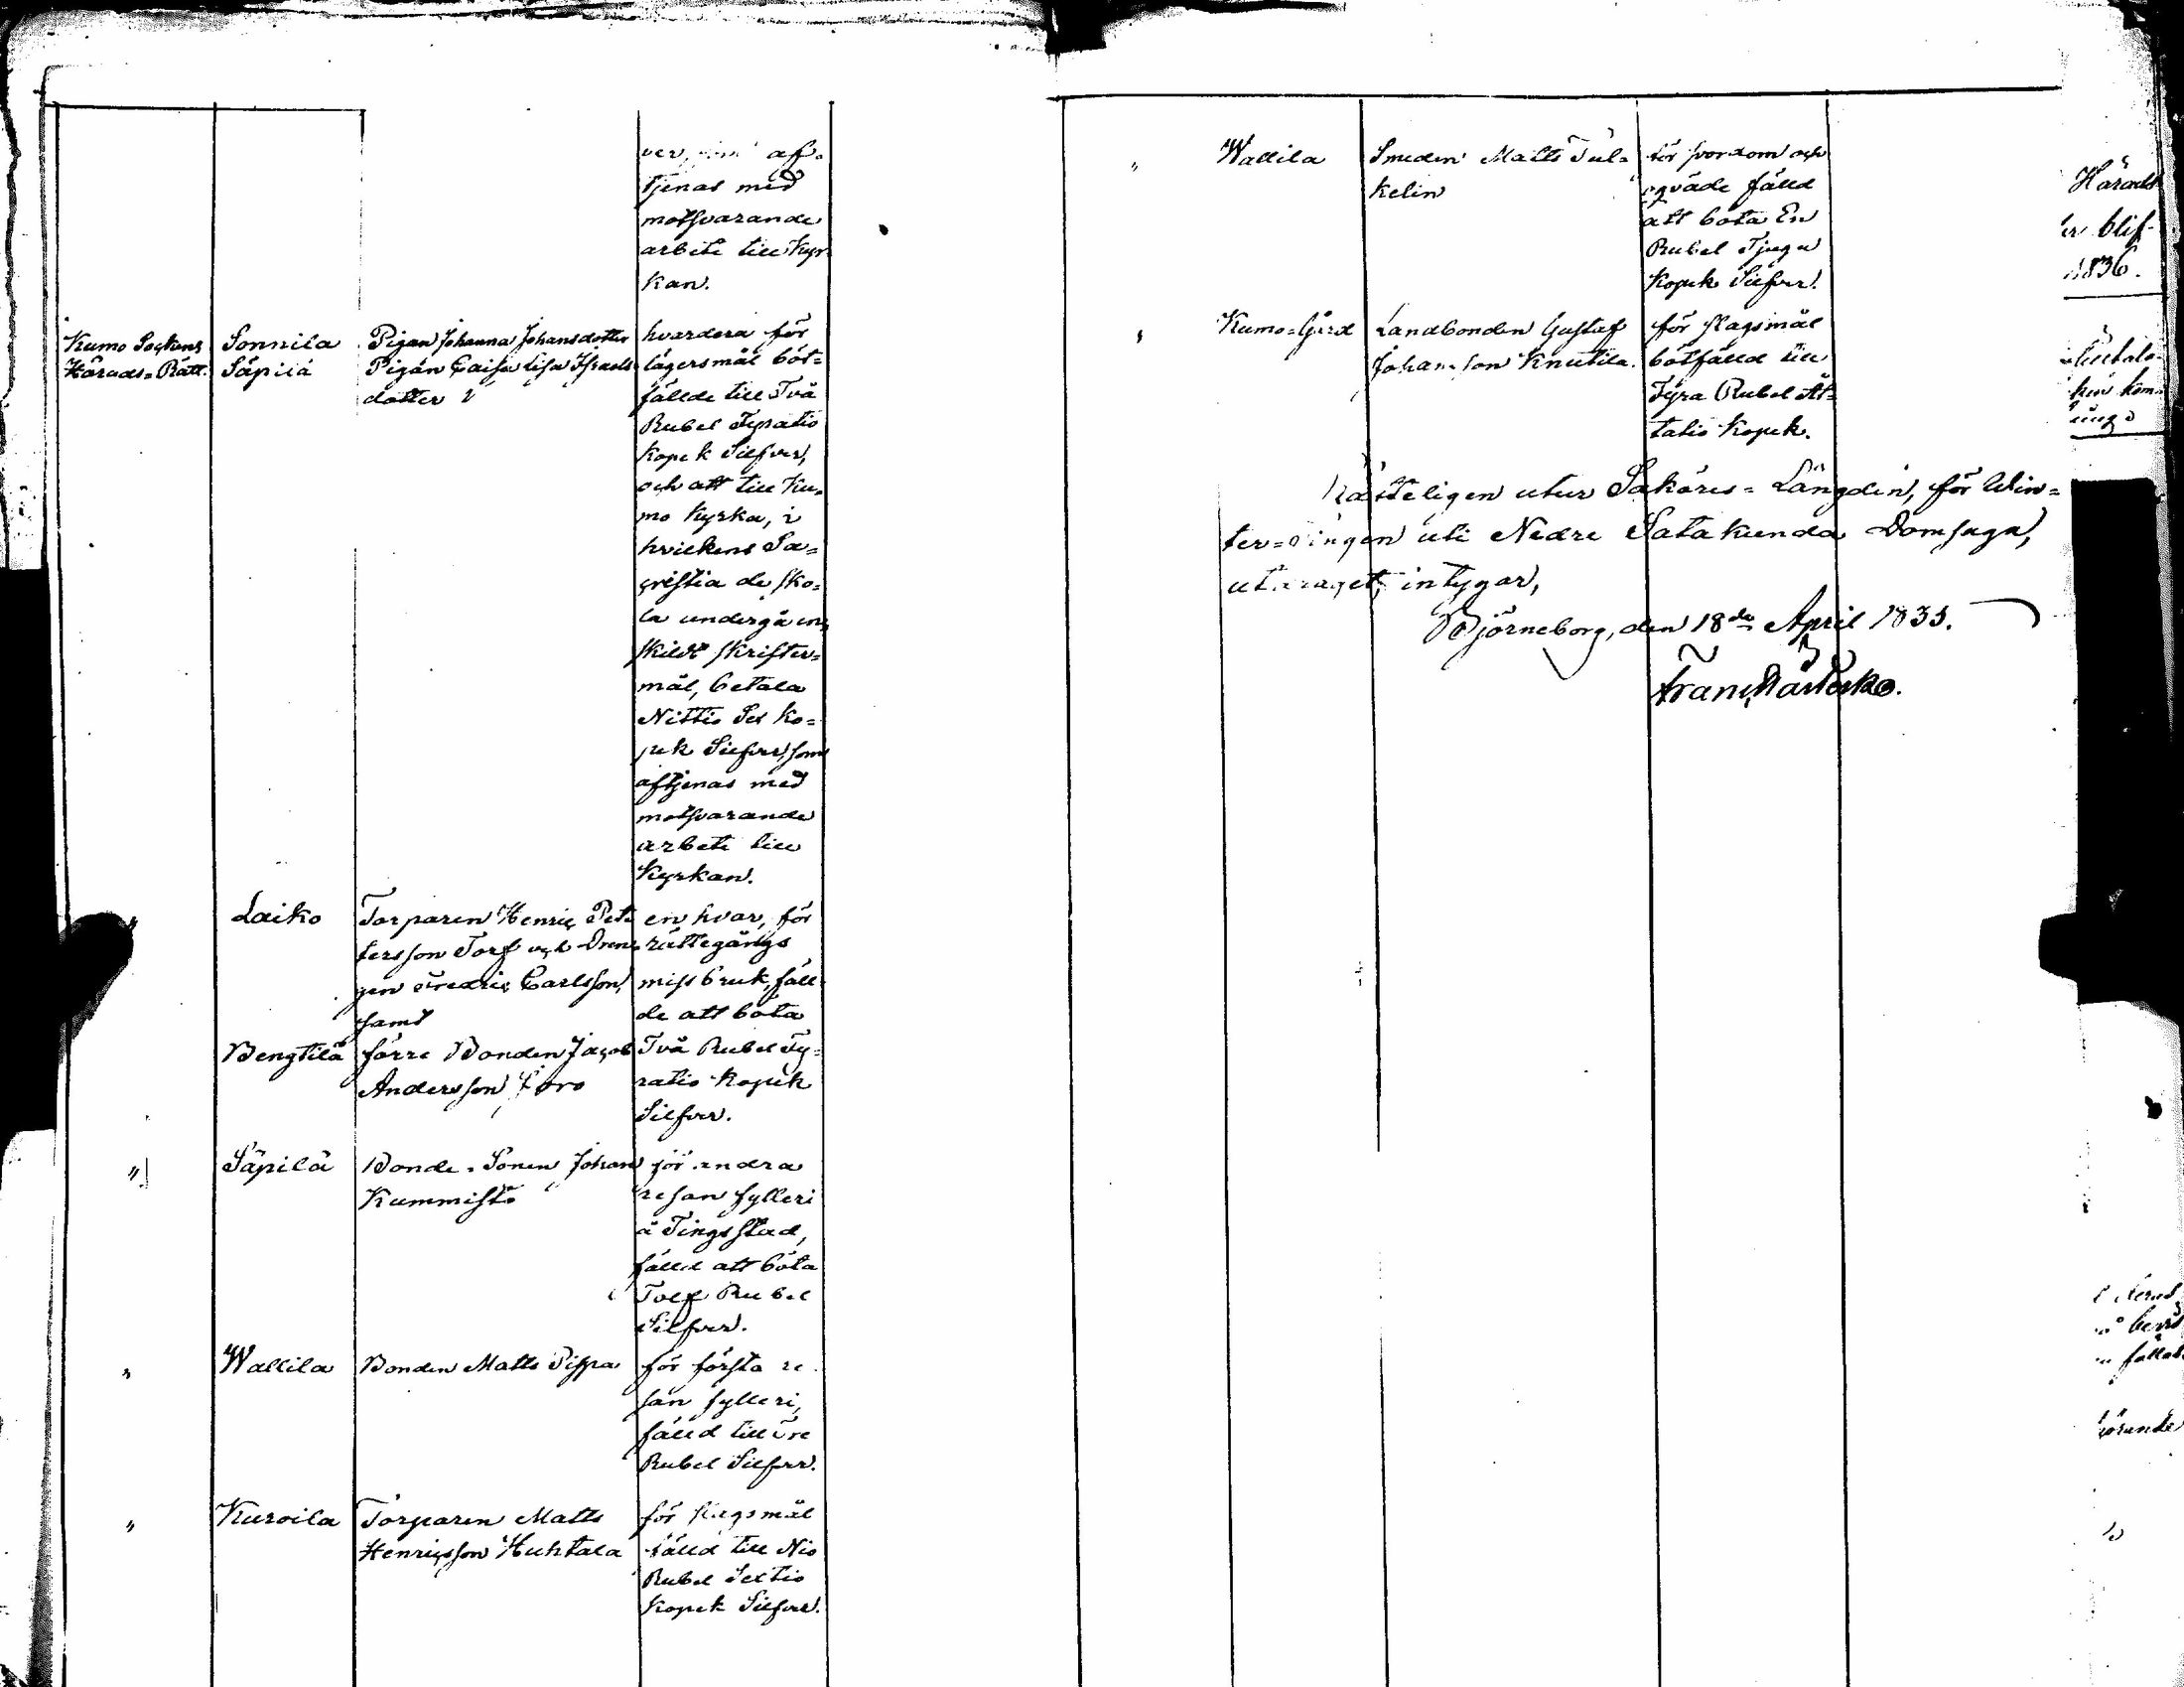 af-
tjenas med
motsvarande
arbete till Kyr-
kan.
Kumo Sockens
Härads-Rätt.
Sonnila
Säpilä
Pigan Johanna Johansdotter
Pigan Caisa Lisa Isracls-
dotter
hvardera för
lägersmål böt-
fällde till Två
Rubel Fyratio
Kopek Silfver,
och att till Ku-
mo Kyrka, i
hvilkens Sa-
cristia de sko-
la undergå en-
skildt skrifter-
mål, betala
Nittio Sex Ko-
pek Silfver, som
aftjenas med
motsvarande
arbete till
Kyrkan.
"
Laiko
Torparen Henric Pet-
tersson Torf och Dren-
gen Fredric Carlsson,
samt
Bengtilä
förre Bonden Jacob
Andersson
en hvar, för
rättegångs
missbruk, fäll
de att böta
Två Rubel Fy-
ratio Kopek
Silfver.
"
Säpilä
Bonde-Sonen Johan
Kummisto
för andra
resan fylleri
å Tingsstad,
fälld att böta
Tolf Rubel
Silfver.
"
Wallila
Bonden Matts Pippa
för första re-
san fylleri,
fälld till Tre
Rubel Silfver.
"
Kuroila
Torparen Matts
Henricsson Huhtala
för slagsmål
fälld till Nio
Rubel Sextio
Kopek Silfver.
"
Wallila
Smeden Matts Tul-
kelin
för svordom och
oqväde fälld
att böta En
Rubel Tjugu
Kopek Silfver.
"
Kumo-Gård
Landbonden Gustaf
Johansson Knutila.
för slagsmål
bötfälld till
Fyra Rubel Åt-
tatio Kopek.
Rätteligen utur Saköres-Längden, för Win-
ter-Tingen uti Nedre Satakunda Domsaga,
utdraget, intygar,
Björneborg, den 18de April 1835.
Härads
blif-
1836.